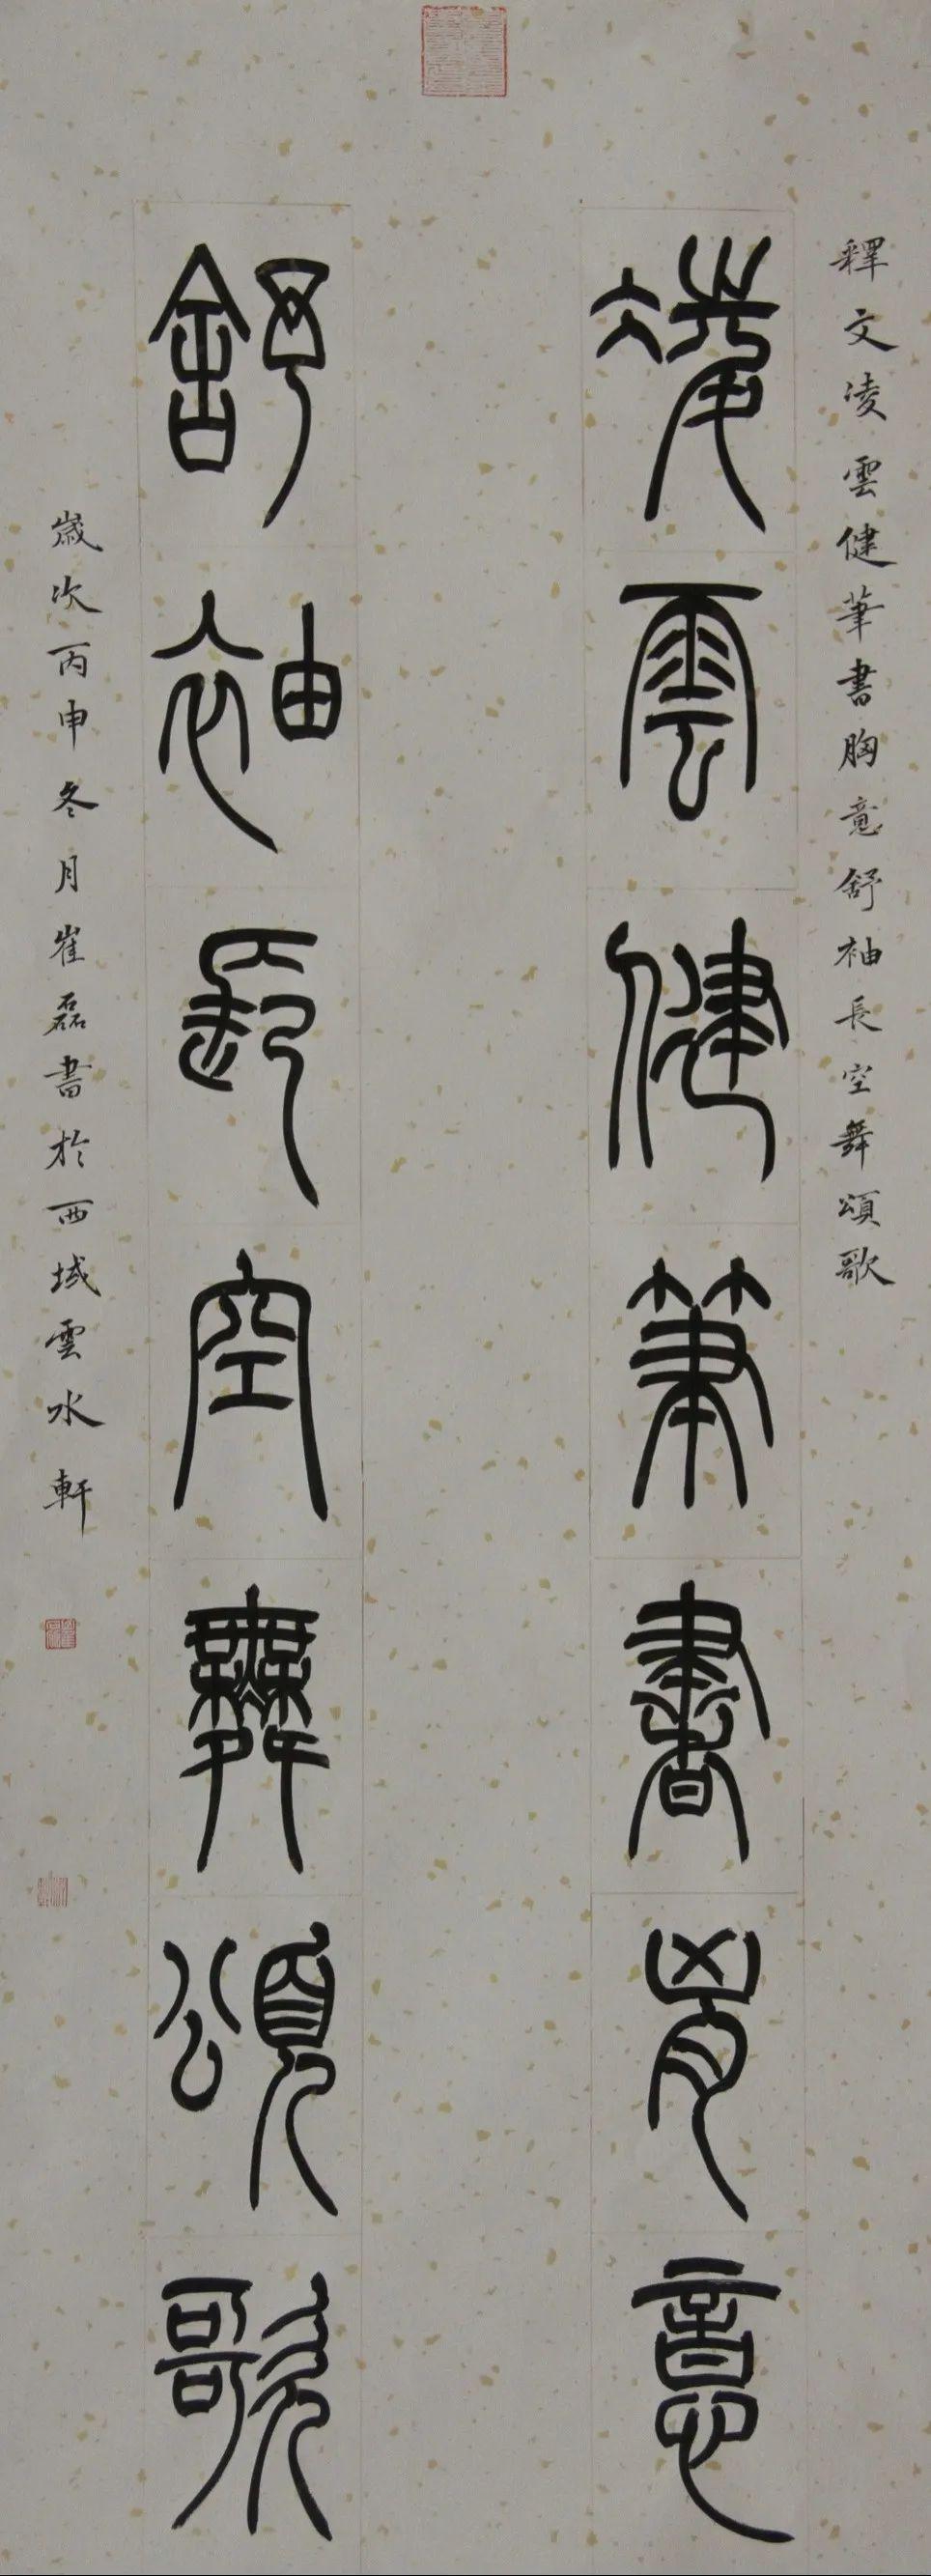 釋文凌雲健筆書胸意舒袖長空舞頌歌
凌雲健筆書胸意
舒袖長空舞頌歌
歲次丙申冬月崔磊書於西域雲水軒